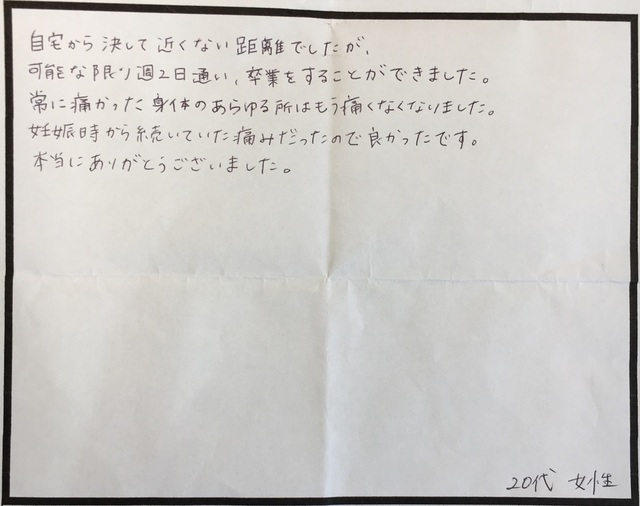 自宅から決して近くない距離でしたが、
可能な限り週2日通い、卒業をすることができました。
常に痛かった身体のあらゆる所はもう痛くなくなりました。
妊娠時から続いていた痛みだったので良かったです。
本当にありがとうございました。
20代 女性